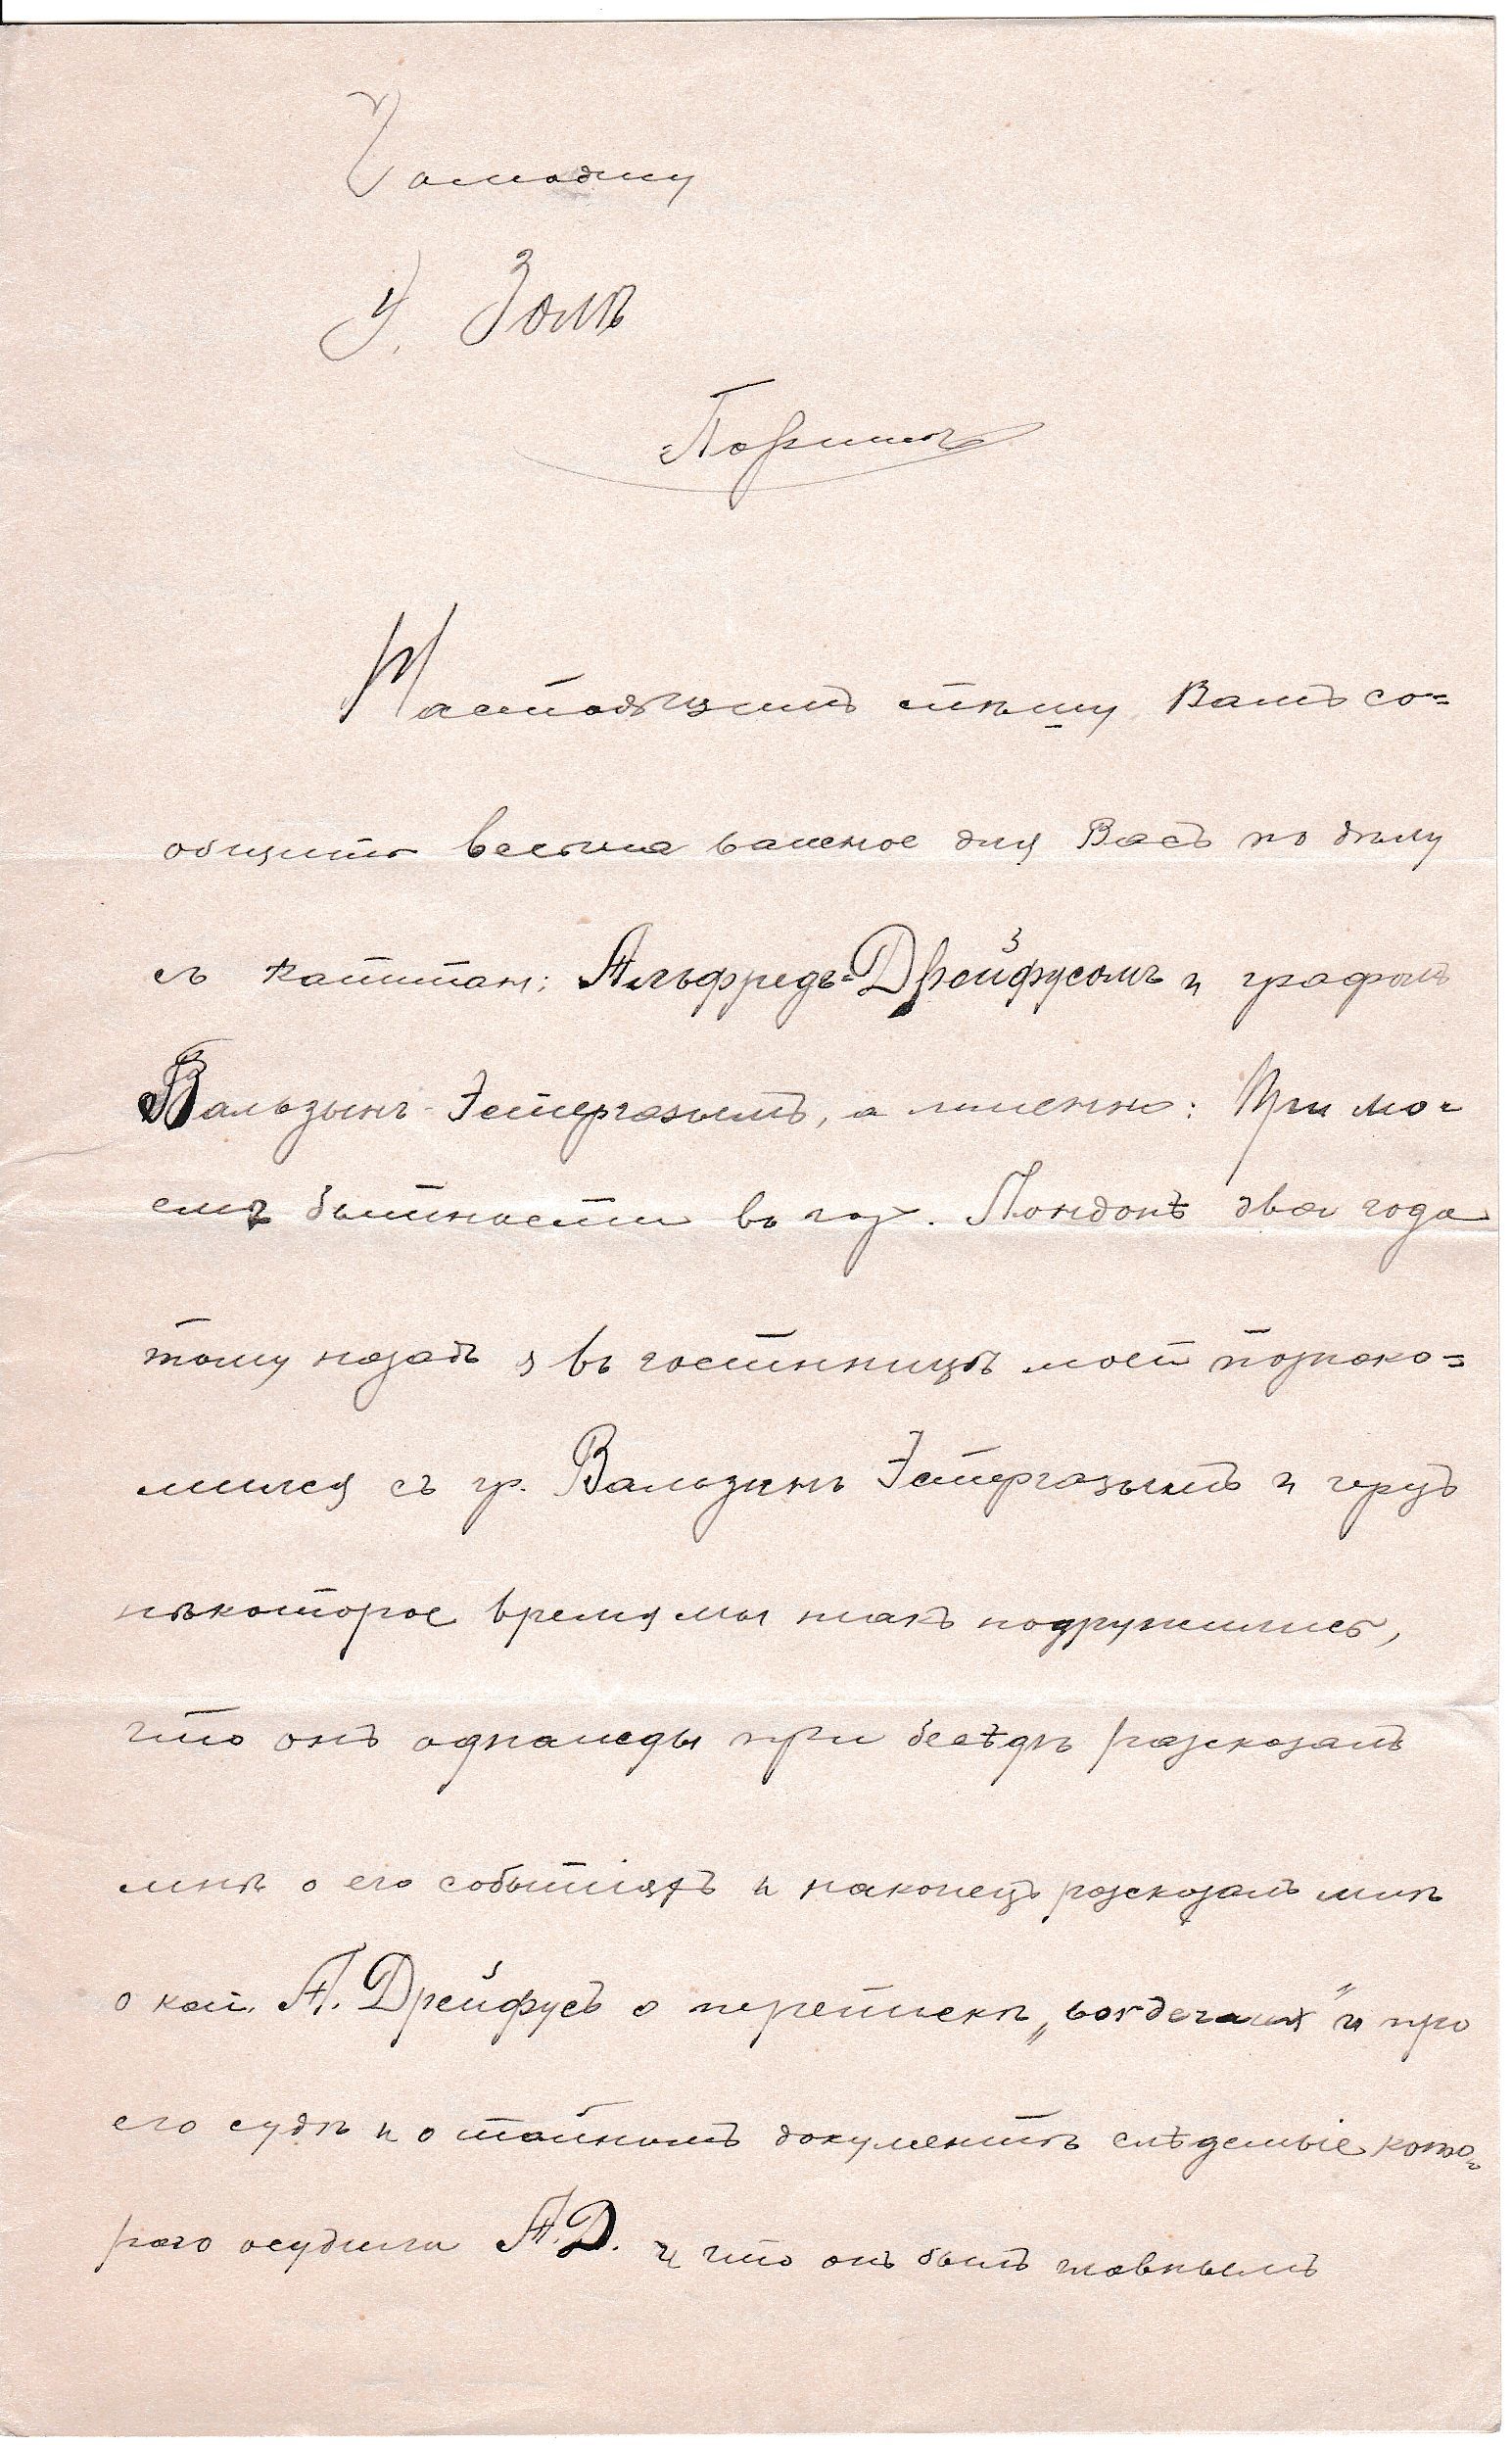 Господину
Э. Золя
Парижъ
Настоящимъ спѣшу Вамъ со=
общить весьма важное для Васъ по дѣлу
съ капитан: Альфредъ=Дрейфусомъ и графомъ
Вальзынъ-Эстергазымъ, а именно: При мо=
емъ бытности въ гор. Лондонѣ два года
тому назадъ я въ гостинницѣ моей познако=
мился съ гр. Вальзинъ Эстергазымъ и черезъ
нѣкоторое время мы такъ подружились,
что онъ однажды при бесѣдѣ разсказалъ
мнѣ о его событіяхъ и наконецъ разсказалъ мнѣ
о кап. А. Дрейфусъ о перепискѣ и про
его судѣ и о тайномъ документѣ кото=
раго осудили А.Д. и что онъ былъ главнымъ